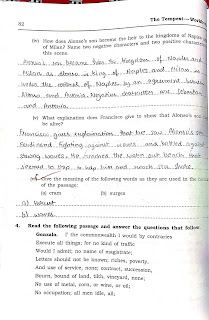 82
The Tempest—Workbook
(iv) How does Alonso's son become the heir to the kingdoms of Naples
of Milan? Name two negative characters and two positive characters
this scene.
Alonso's son became heir to kingdom of Naples and
Milan as Alonso is king of Naples and Milan is
under the control of Naples by an agreement between
Alonso and Antonio. Negative characters are Sebastian
and Antonio.
(v) What explanation does Francisco give to show that Alonso's son
be alive?
Francisco gives explanation that he saw Alonso's son
Ferdinand fighting against waves and battled against
strong waves. He reached the beach that
seemed to stoop to help him and reach the shore.
(vi) Give the meaning of the following words as they are used in the context
of the passage:
(a) cram (b) surges
(a) thrust
(b) waves
4. Read the following passage and answer the questions that follow:
Gonzalo. I' the commonwealth I would by contraries
Execute all things; for no kind of traffic
Would I admit; no name of magistrate;
Letters should not be known; riches, poverty,
And use of service, none; contract, succession,
Bourn, bound of land, tilth, vineyard, none;
No use of metal, corn, or wine, or oil;
No occupation; all men idle, all;